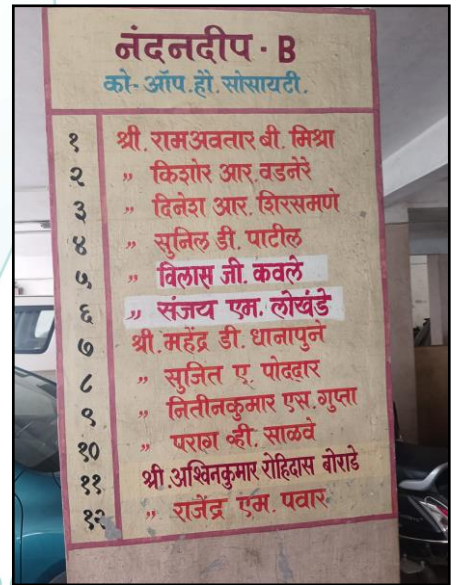 नंदनदीप · B
को-ऑप.हौ. सोसायटी.
१ श्री. रामअवतार बी. मिश्रा
२ ,, किशोर आर. वडनेरे
३ ,, दिनेश आर. शिरसमणे
४ ,, सुनिल डी. पाटील
५ ,, विलास जी. कवले
६ ,, संजय एम. लोखंडे
७ श्री. महेंद्र डी. धानापुने
८ ,, सुजित ए. पोददार
९ ,, नितीनकुमार एस. गुप्ता
१० ,, पराग व्ही. साळवे
११ श्री अश्विनकुमार रोहिदास बोराडे
१२ ,, राजेंद्र एम. पवार